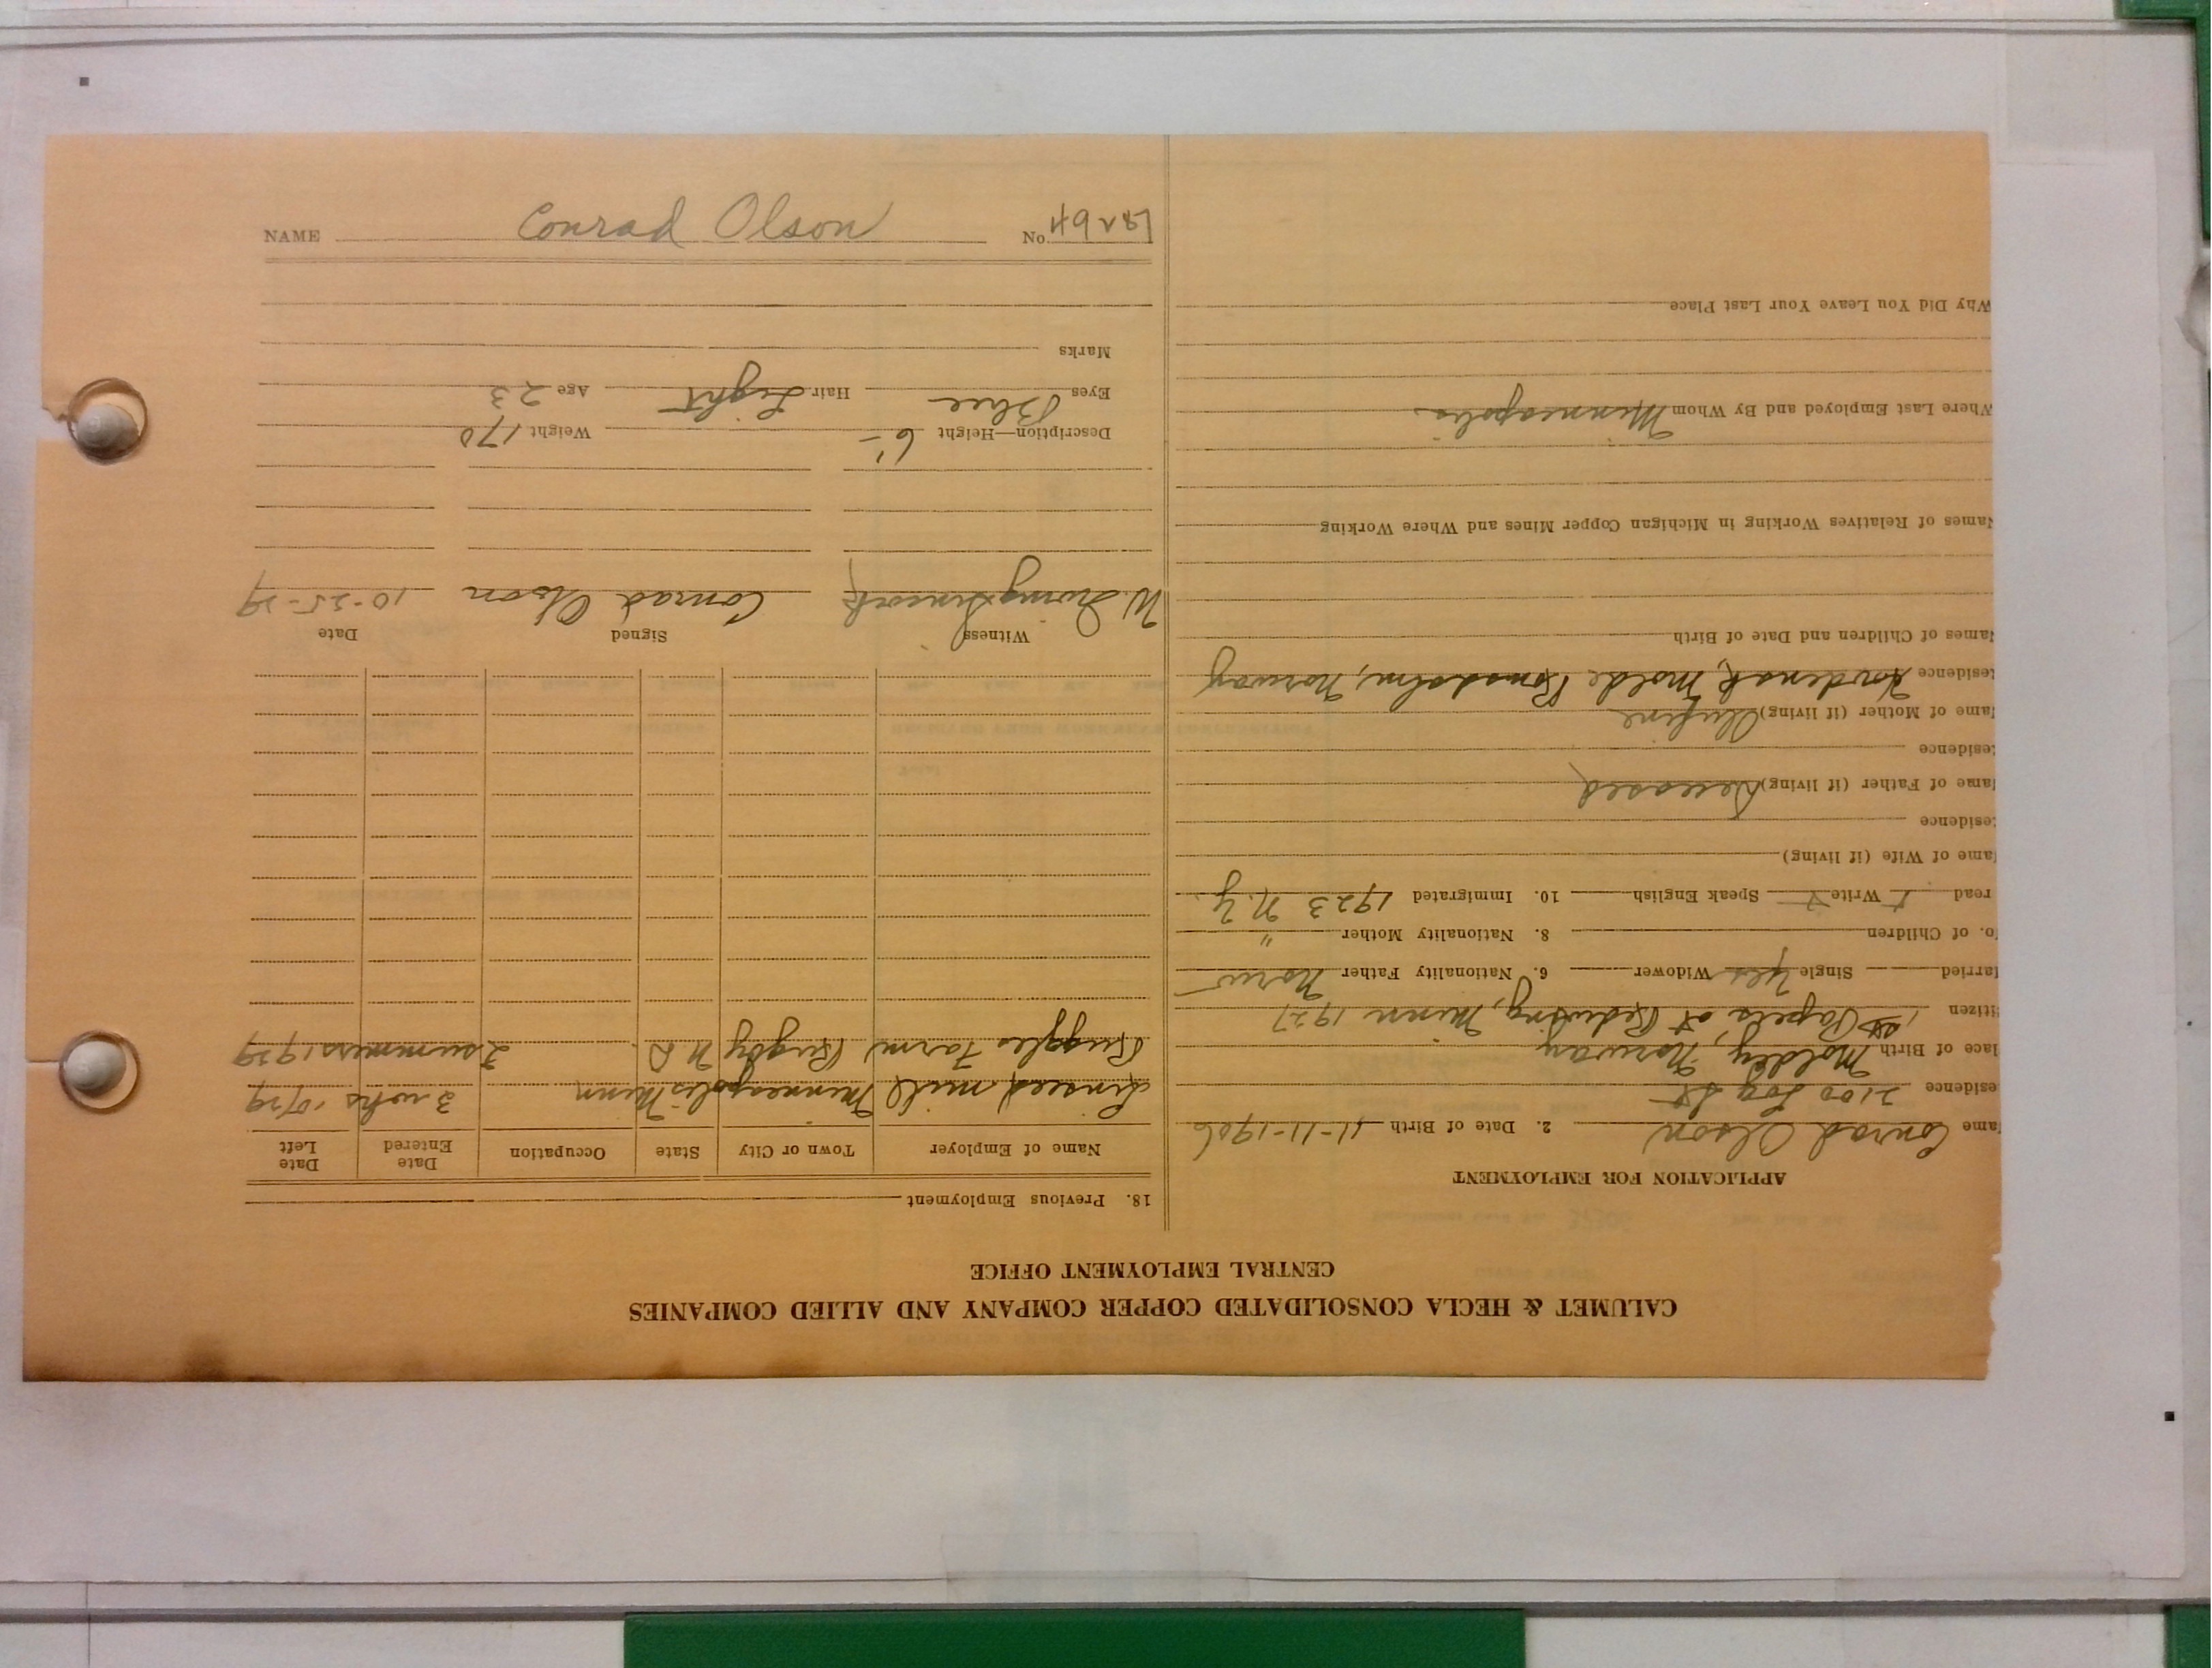 CALUMET & HECLA CONSOLIDATED COPPER COMPANY AND ALLIED COMPANIES
CENTRAL EMPLOYMENT OFFICE
APPLICATION FOR EMPLOYMENT
ame Conrad Olson 2. Date of Birth 11-11-1906
esidence 2100 Log St
lace of Birth Moldey, Norway
itizen 1st Papers at Redwing, Minn 1927
arried Single Yes Widower 6. Nationality Father Norw
o. of Children 8. Nationality Mother "
read Write Speak English 10. Immigrated 1923 N.Y.
ame of Wife (if living)
esidence
ame of Father (if living) Deceased
esidence
ame of Mother (if living) Olufine
esidence Molde Romsdalen, Norway
ames of Children and Date of Birth
ames of Relatives Working in Michigan Copper Mines and Where Working
Where Last Employed and By Whom Minneapolis
Why Did You Leave Your Last Place
18. Previous Employment
Name of Employer Town or City State Occupation Date Entered Date Left
Linseed mill Minneapolis Minn 3 wks 10/29
Ruggles Farm Rugby N D 2 summers 1929
Witness Signed Date
W. Irving Conrad Olson 10-25-29
Description—Height 6'- Weight 170
Eyes Blue Hair Light Age 23
Marks
NAME Conrad Olson No.